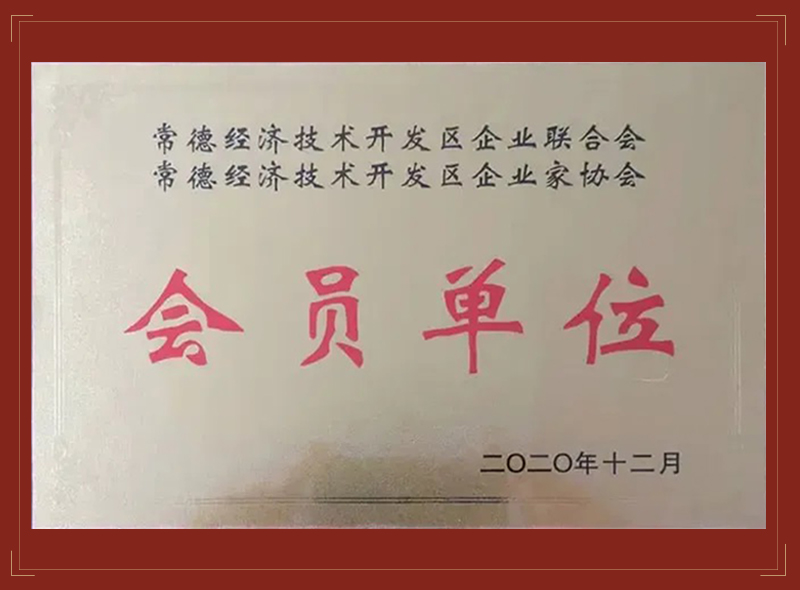 常德经济技术开发区企业联合会
常德经济技术开发区企业家协会
会员单位
二〇二〇年十二月